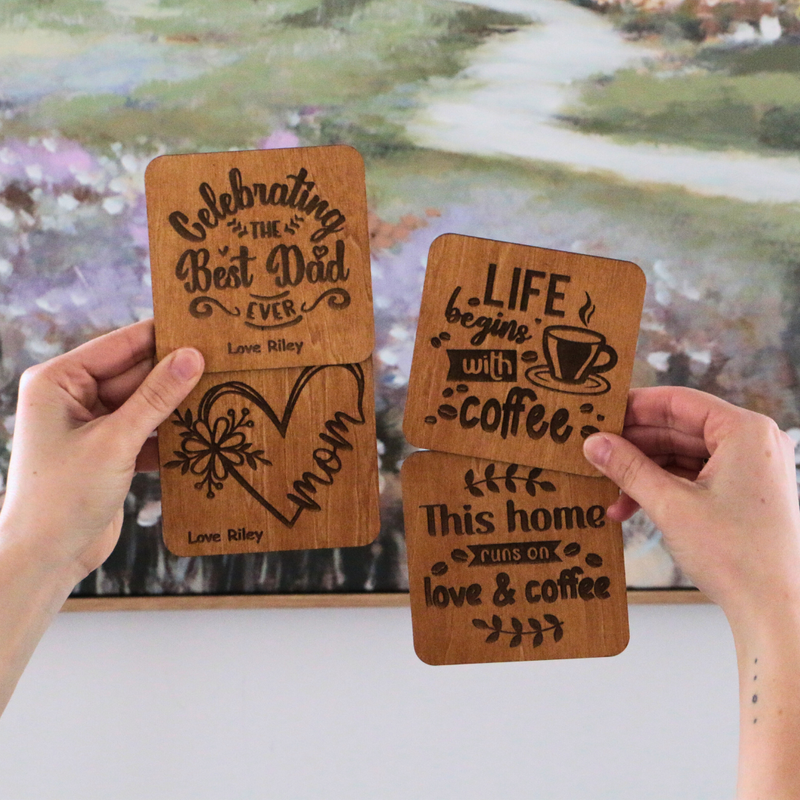 Celebrating
THE
Best Dad
EVER
Love Riley
mom
Love Riley
LIFE
begins
with
coffee
This home
runs on
love & coffee